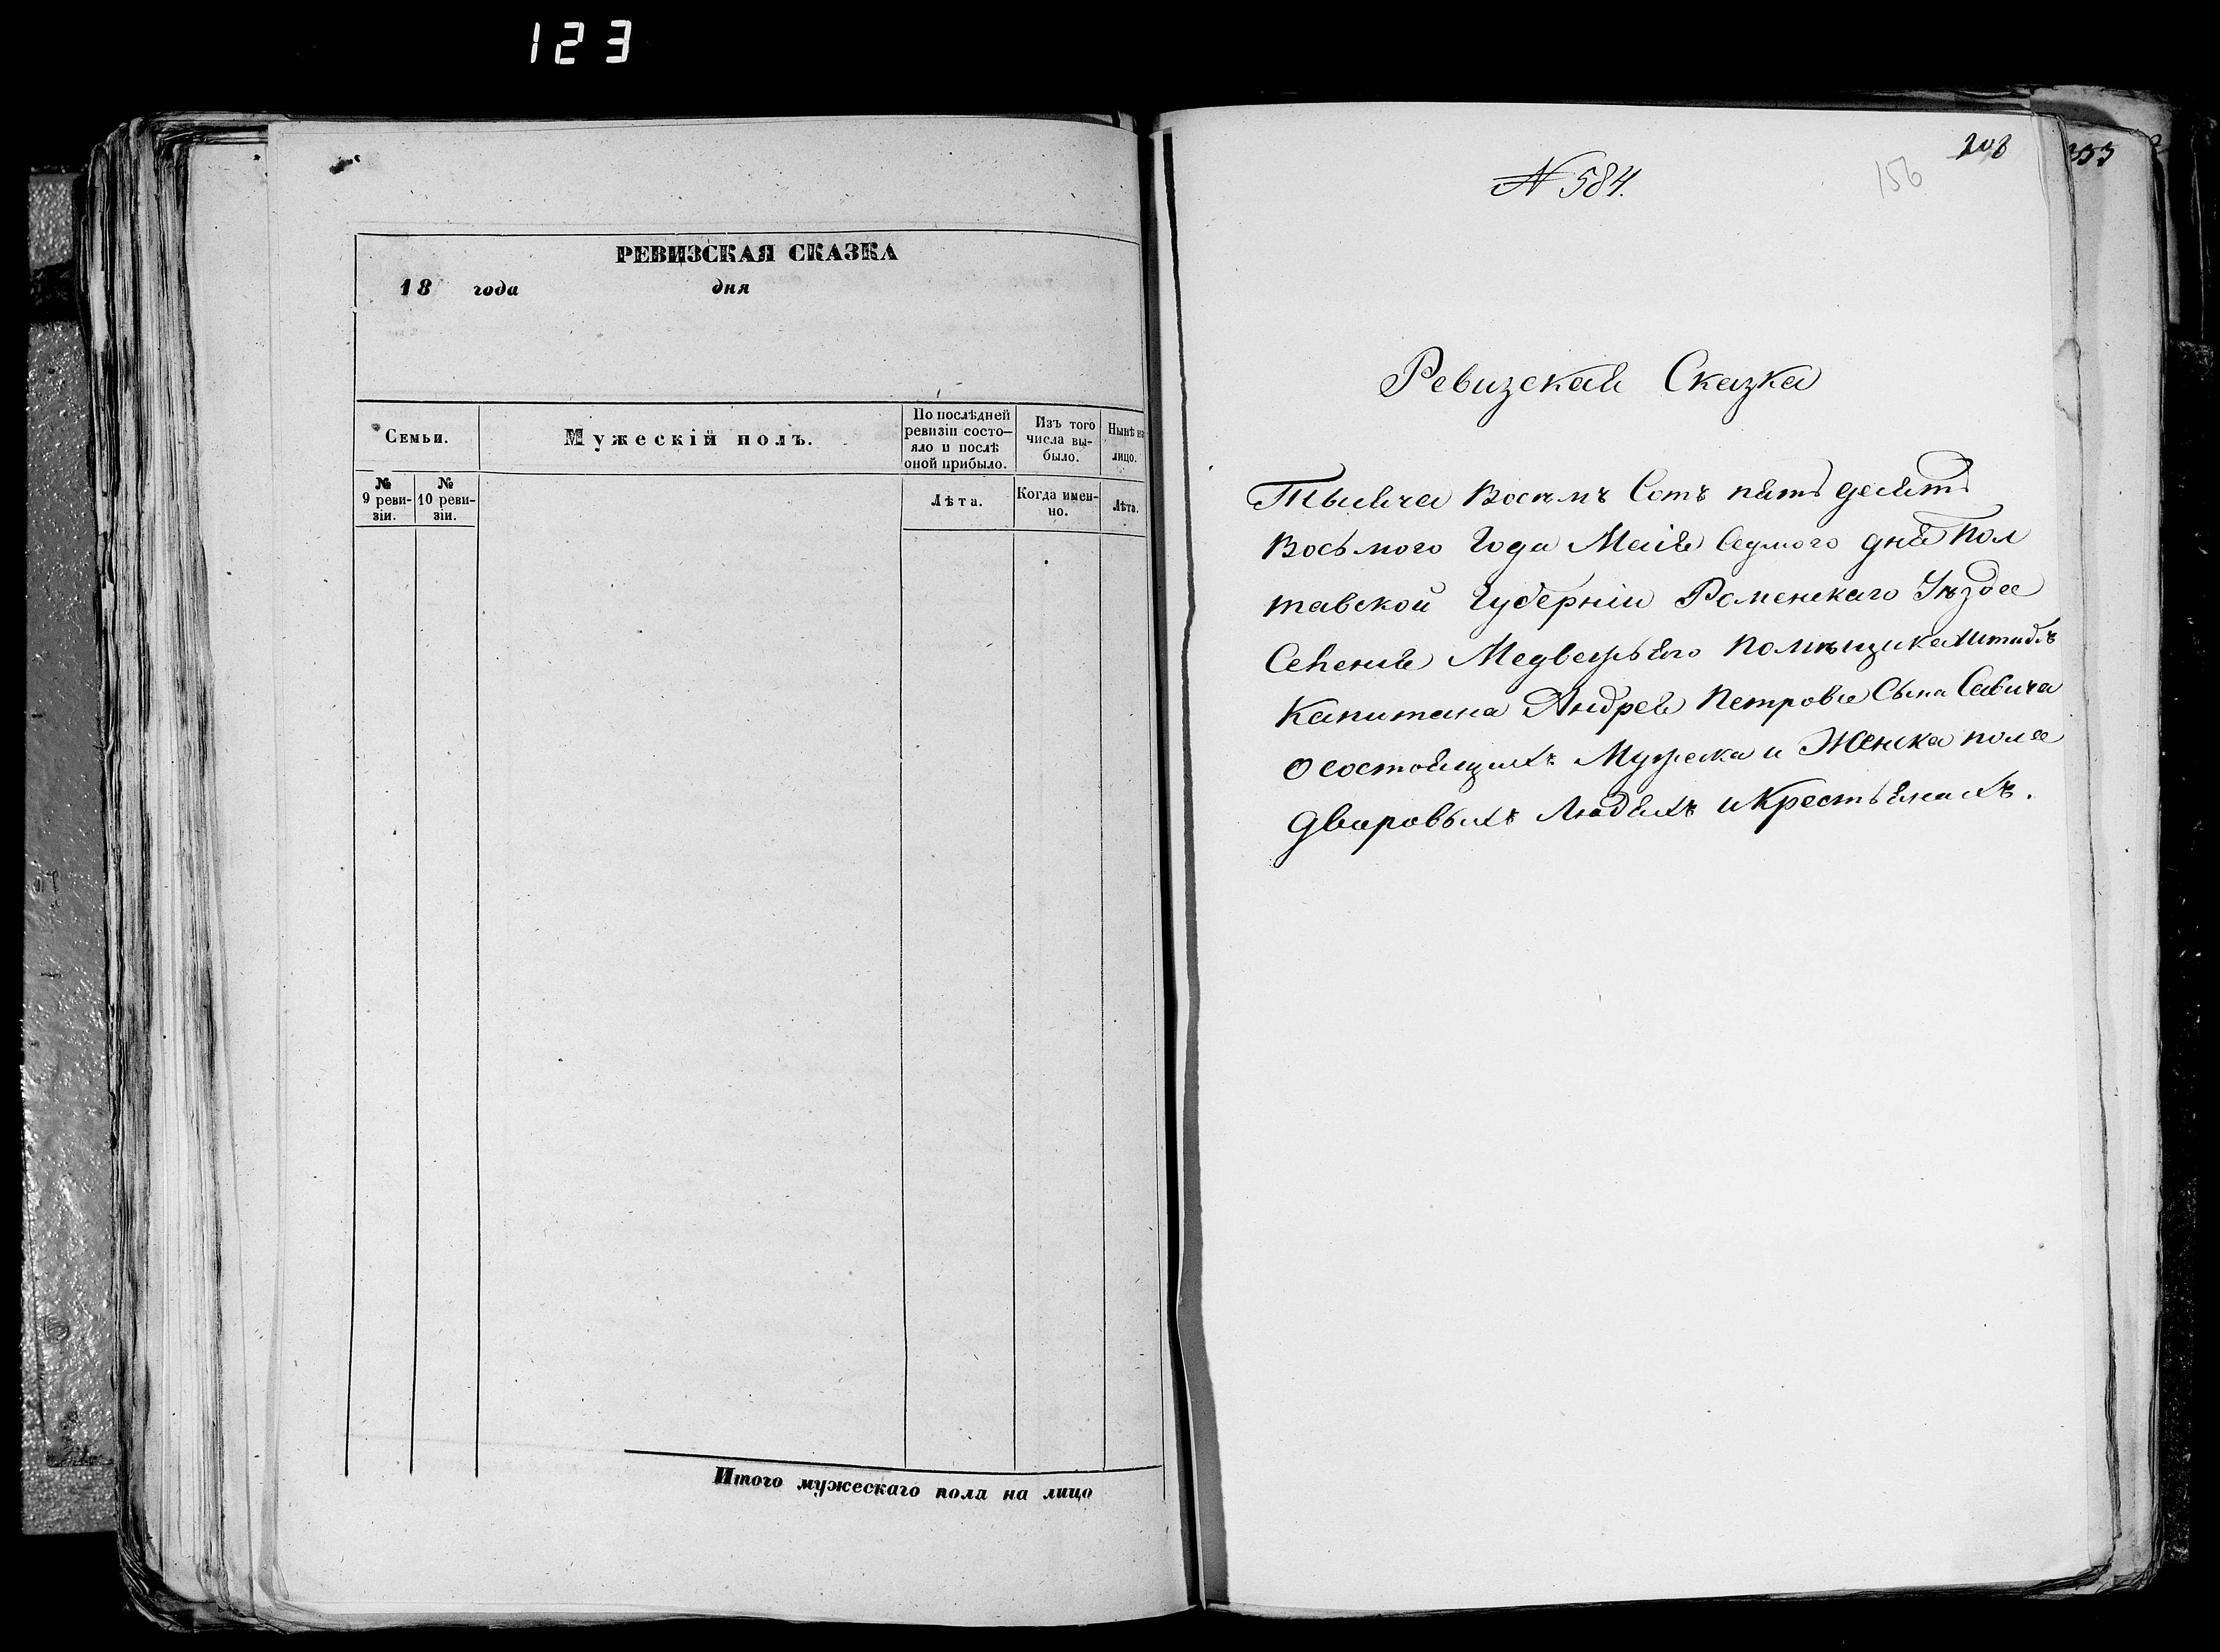 123
РЕВИЗСКАЯ СКАЗКА
18 года дня
Семьи.
Мужескій полъ.
По послѣдней
ревизіи состо-
яло и послѣ
оной прибыло.
Изъ того
числа вы-
было.
Нынѣ на
лицо.
№
9 реви-
зіи.
№
10 реви-
зіи.
Лѣта.
Когда имен-
но.
Лѣта.
Итого мужескаго пола на лицо
208
156
№ 584.
Ревизская Сказка
Тысяча Восемъ Сотъ пять десятъ
Восьмого Года Маія Седмого дня Пол
тавской Губерніи Роменскаго Уѣзда
Селенія Медвежьяго помѣщика Штабъ
Капитана Андрея Петрова Сына Савича
О состоящихъ Мужеска и Женска пола
дворовыхъ Людяхъ и Крестьянахъ.